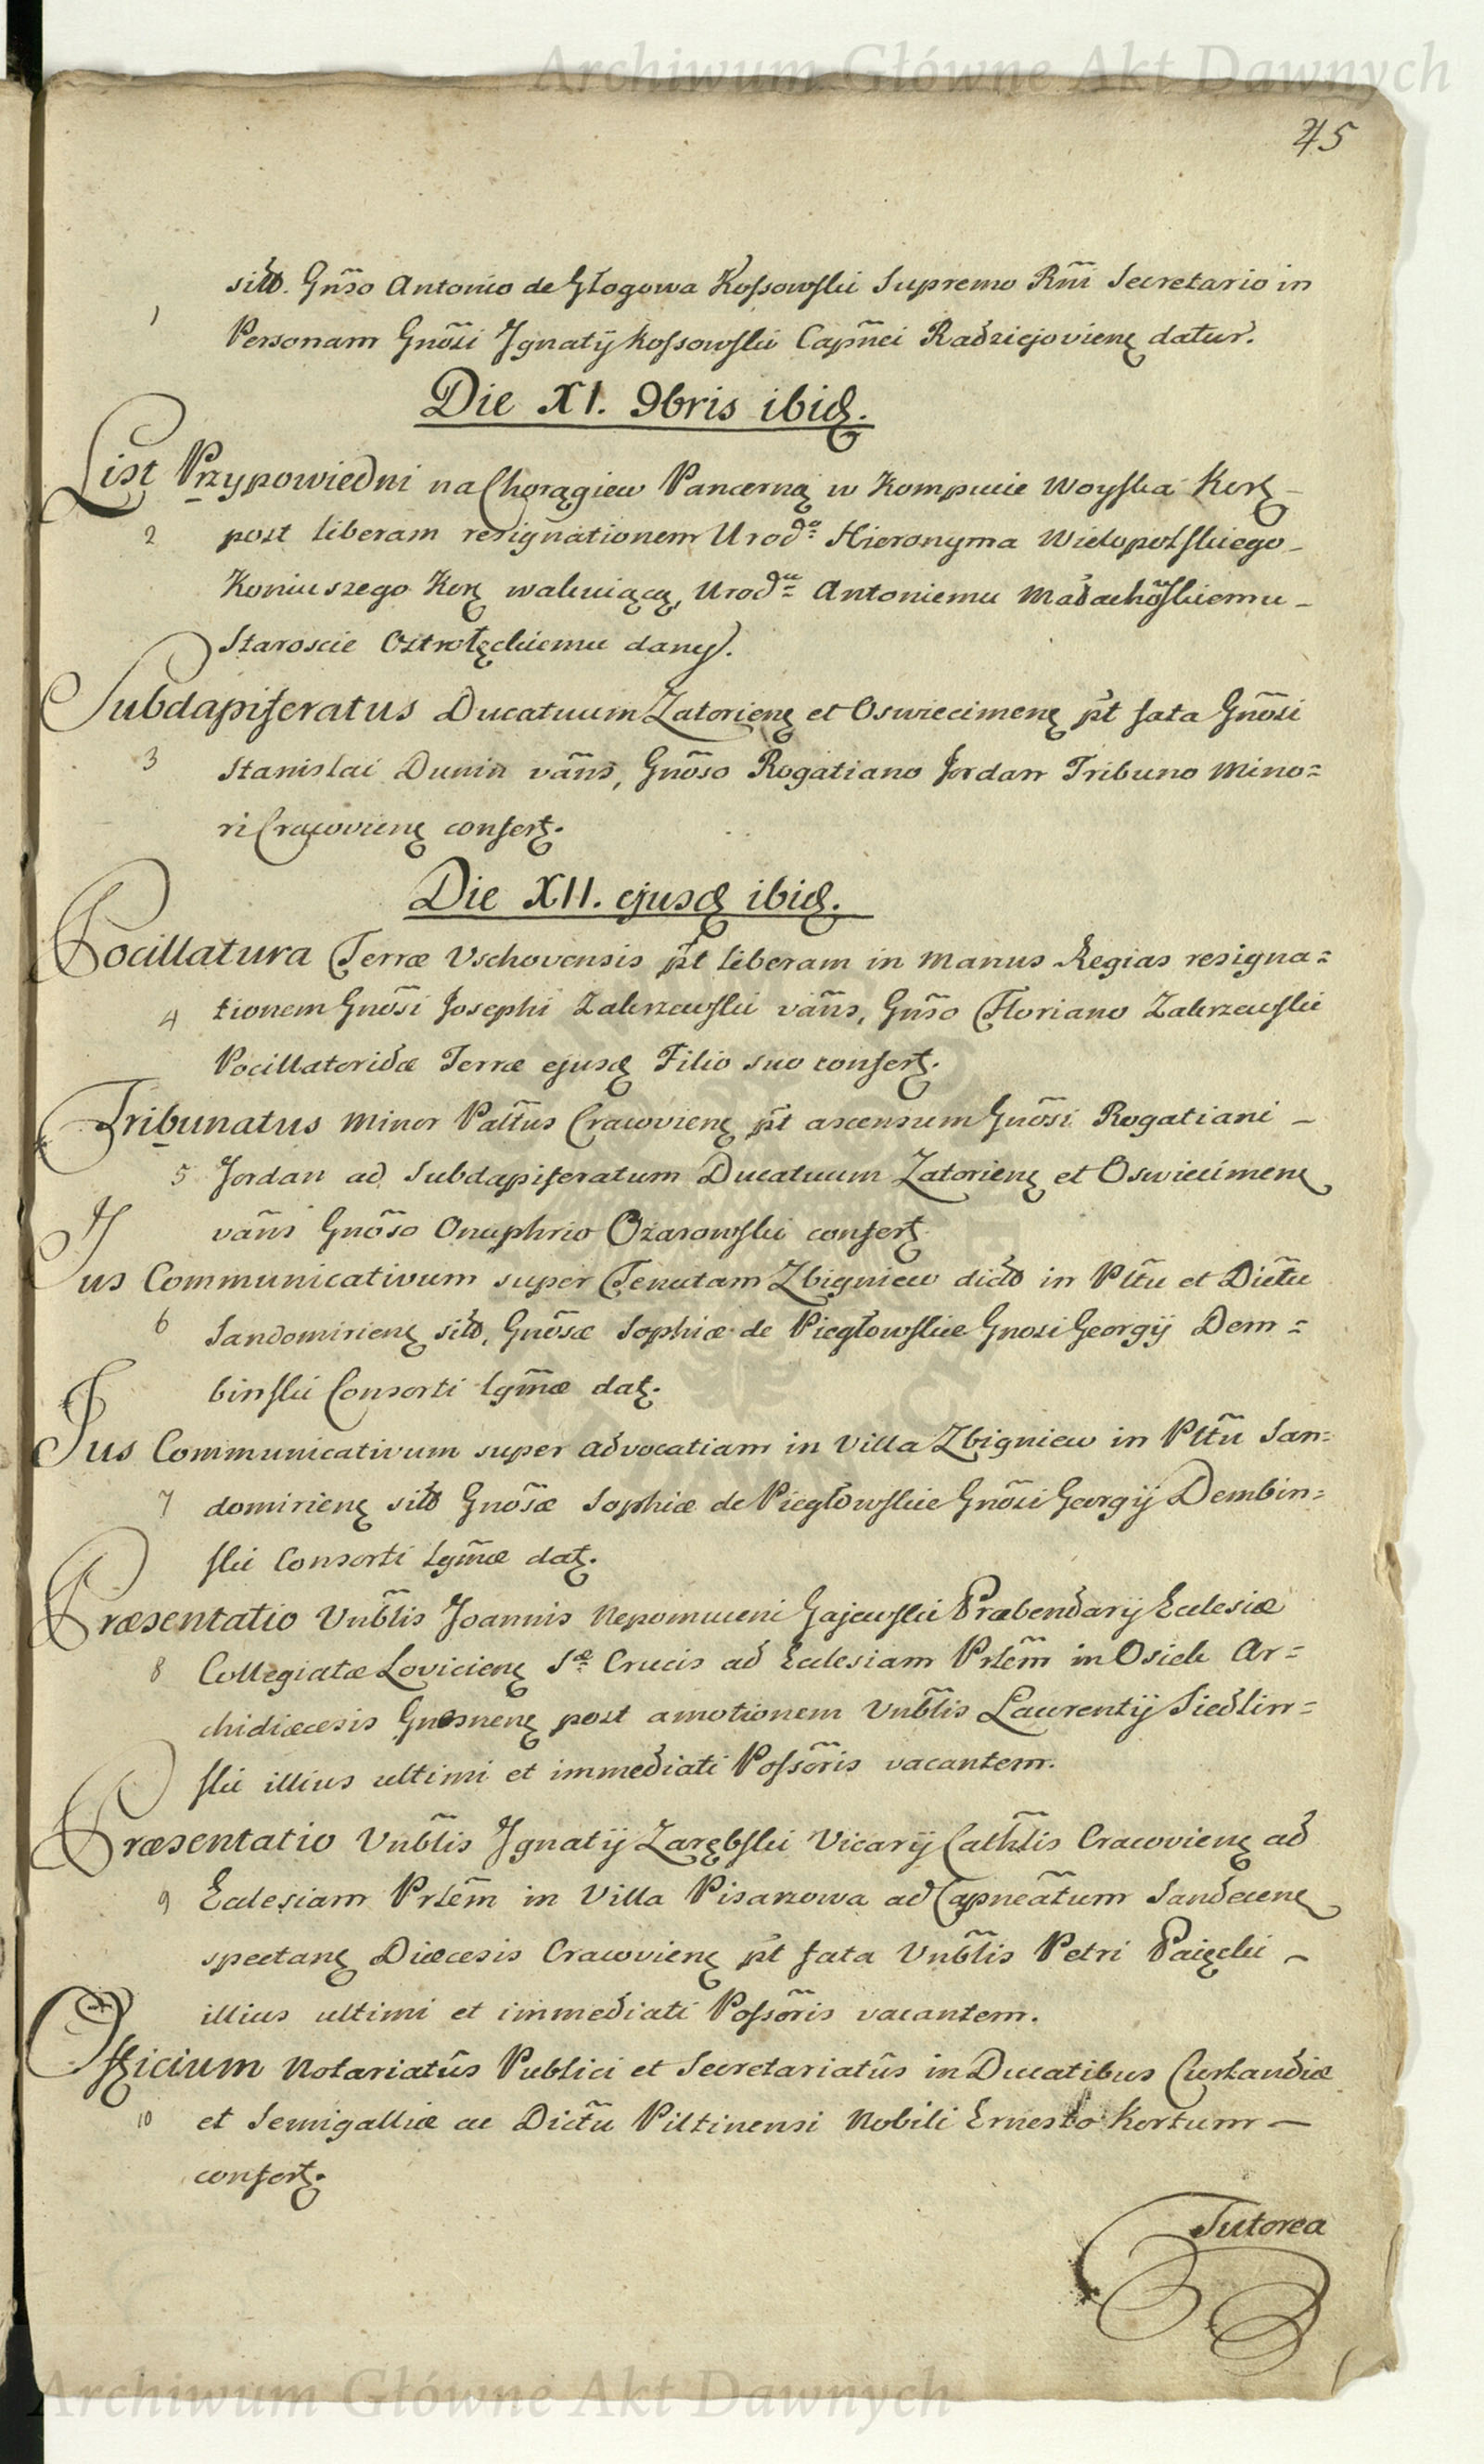 Archiwum Główne Akt Dawnych
45
sitto. Gnso Antonio de Głogowa Kossowski Supremo Rni Secretario in
1 Personam Gnosi Ignatij Kossowski Capnei Radziejovien datur.
Die XI. 9bris ibid.
List Przypowiedni na Chorągiew Pancerną w Kompucie Woyska Kor
2 post liberam resignationem Urodo Hieronyma Wielopolskiego
Koniuszego Kor wakuiącą, Urodu Antoniemu Małachowskiemu
Staroscie Ostrołęckiemu dany.
Subdapiferatus Ducatuum Zatorien et Oswiecimen pt fata Gnosi
3 Stanislai Dunin vans, Gnoso Rogatiano Jordan Tribuno Mino=
ri Cracovien confert.
Die XII. ejusd ibid.
Pocillatura Terræ Vschovensis pt liberam in Manus Regias resigna=
4 tionem Gnosi Josephi Zakrzewski vans, Gnso Floriano Zakrzewski
Pocillatoridæ Terræ ejusd Filio suo confert.
Tribunatus Minor Pattus Cracovien pt ascensum Gnosi Rogatiani
5 Jordan ad Subdapiferatum Ducatuum Zatorien et Oswiecimen
vans Gnoso Onuphrio Ożarowski confert
Jus Communicativum super Tenutam Zbigniew dicto in Pttu et Dictu
6 Sandomirien sitto, Gnosæ Sophiæ de Piegłowskie Gnosi Georgij Dem=
binski Consorti lgmæ dat.
Jus Communicativum super advocatiam in Villa Zbigniew in Pttu San=
7 domirien sitto Gnosæ Sophiæ de Piegłowskie Gnosi Georgij Dembin=
ski Consorti lgmæ dat.
Præsentatio Vnblis Joannis Nepomuceni Gajewski Præbendarij Ecclesiæ
8 Collegiatæ Lovicien Sæ Crucis ad Ecclesiam Prlem in Osiek Ar=
chidiæcesis Gnesnen post amotionem Vnblis Laurentij Siedlin=
ski illius ultimi et immediati Possoris vacantem.
Præsentatio Vnblis Ignatij Zarębski Vicarij Cathlis Cracovien ad
9 Ecclesiam Prlem in Villa Pisarzowa ad Capneatum Sandecen
spectan Diæcesis Cracovien pt fata Vnblis Petri Paięcki
illius ultimi et immediati Possoris vacantem.
Officium Notariatûs Publici et Secretariatûs in Ducatibus Curlandiæ
10 et Semigalliæ ac Dictu Piltinensi Nobili Ernesto Kortum
confert.
Tutorea
Archiwum Główne Akt Dawnych